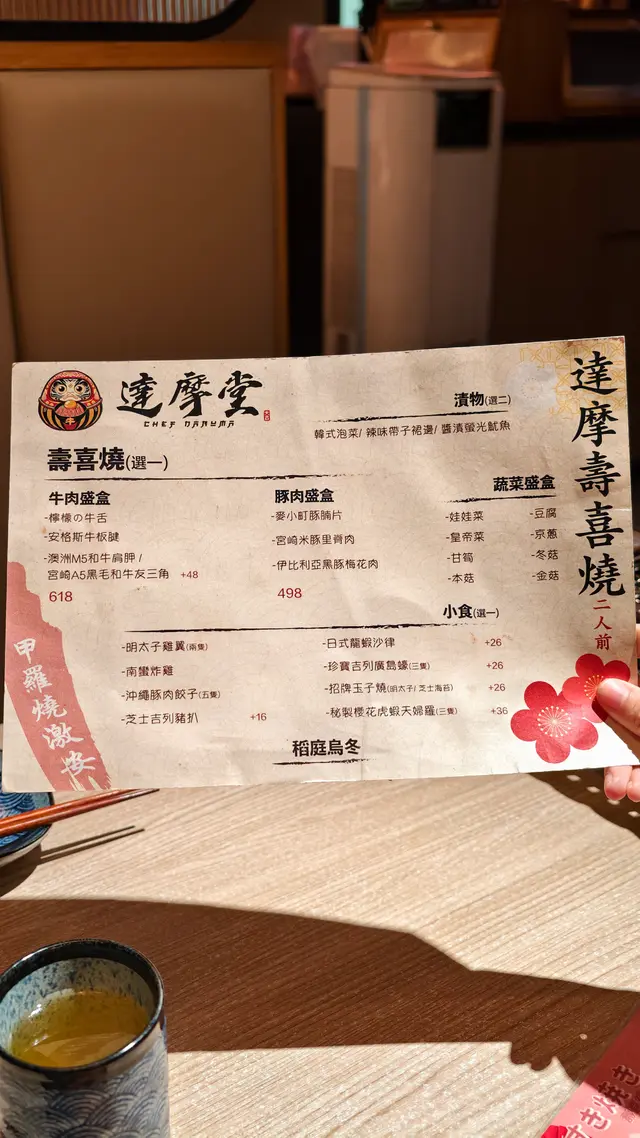 達摩堂
CHEF DARUMA
漬物(選二)
韓式泡菜/ 辣味帶子裙邊/ 醬漬螢光魷魚
壽喜燒(選一)
牛肉盛盒
-檸檬の牛舌
-安格斯牛板腱
-澳洲M5和牛肩胛 /
宮崎A5黑毛和牛友三角 +48
618
豚肉盛盒
-麥小町豚腩片
-宮崎米豚里脊肉
-伊比利亞黑豚梅花肉
498
蔬菜盛盒
-娃娃菜 -豆腐
-皇帝菜 -京蔥
-甘筍 -冬菇
-本菇 -金菇
小食(選一)
-明太子雞翼(兩隻)
-南蠻炸雞
-沖繩豚肉餃子(五隻)
-芝士吉列豬扒 +16
-日式龍蝦沙律 +26
-珍寶吉列廣島蠔(三隻) +26
-招牌玉子燒(明太子/ 芝士海苔) +26
-秘製櫻花虎蝦天婦羅(三隻) +36
稻庭烏冬
達摩壽喜燒
二人前
甲羅燒激安
すき焼き